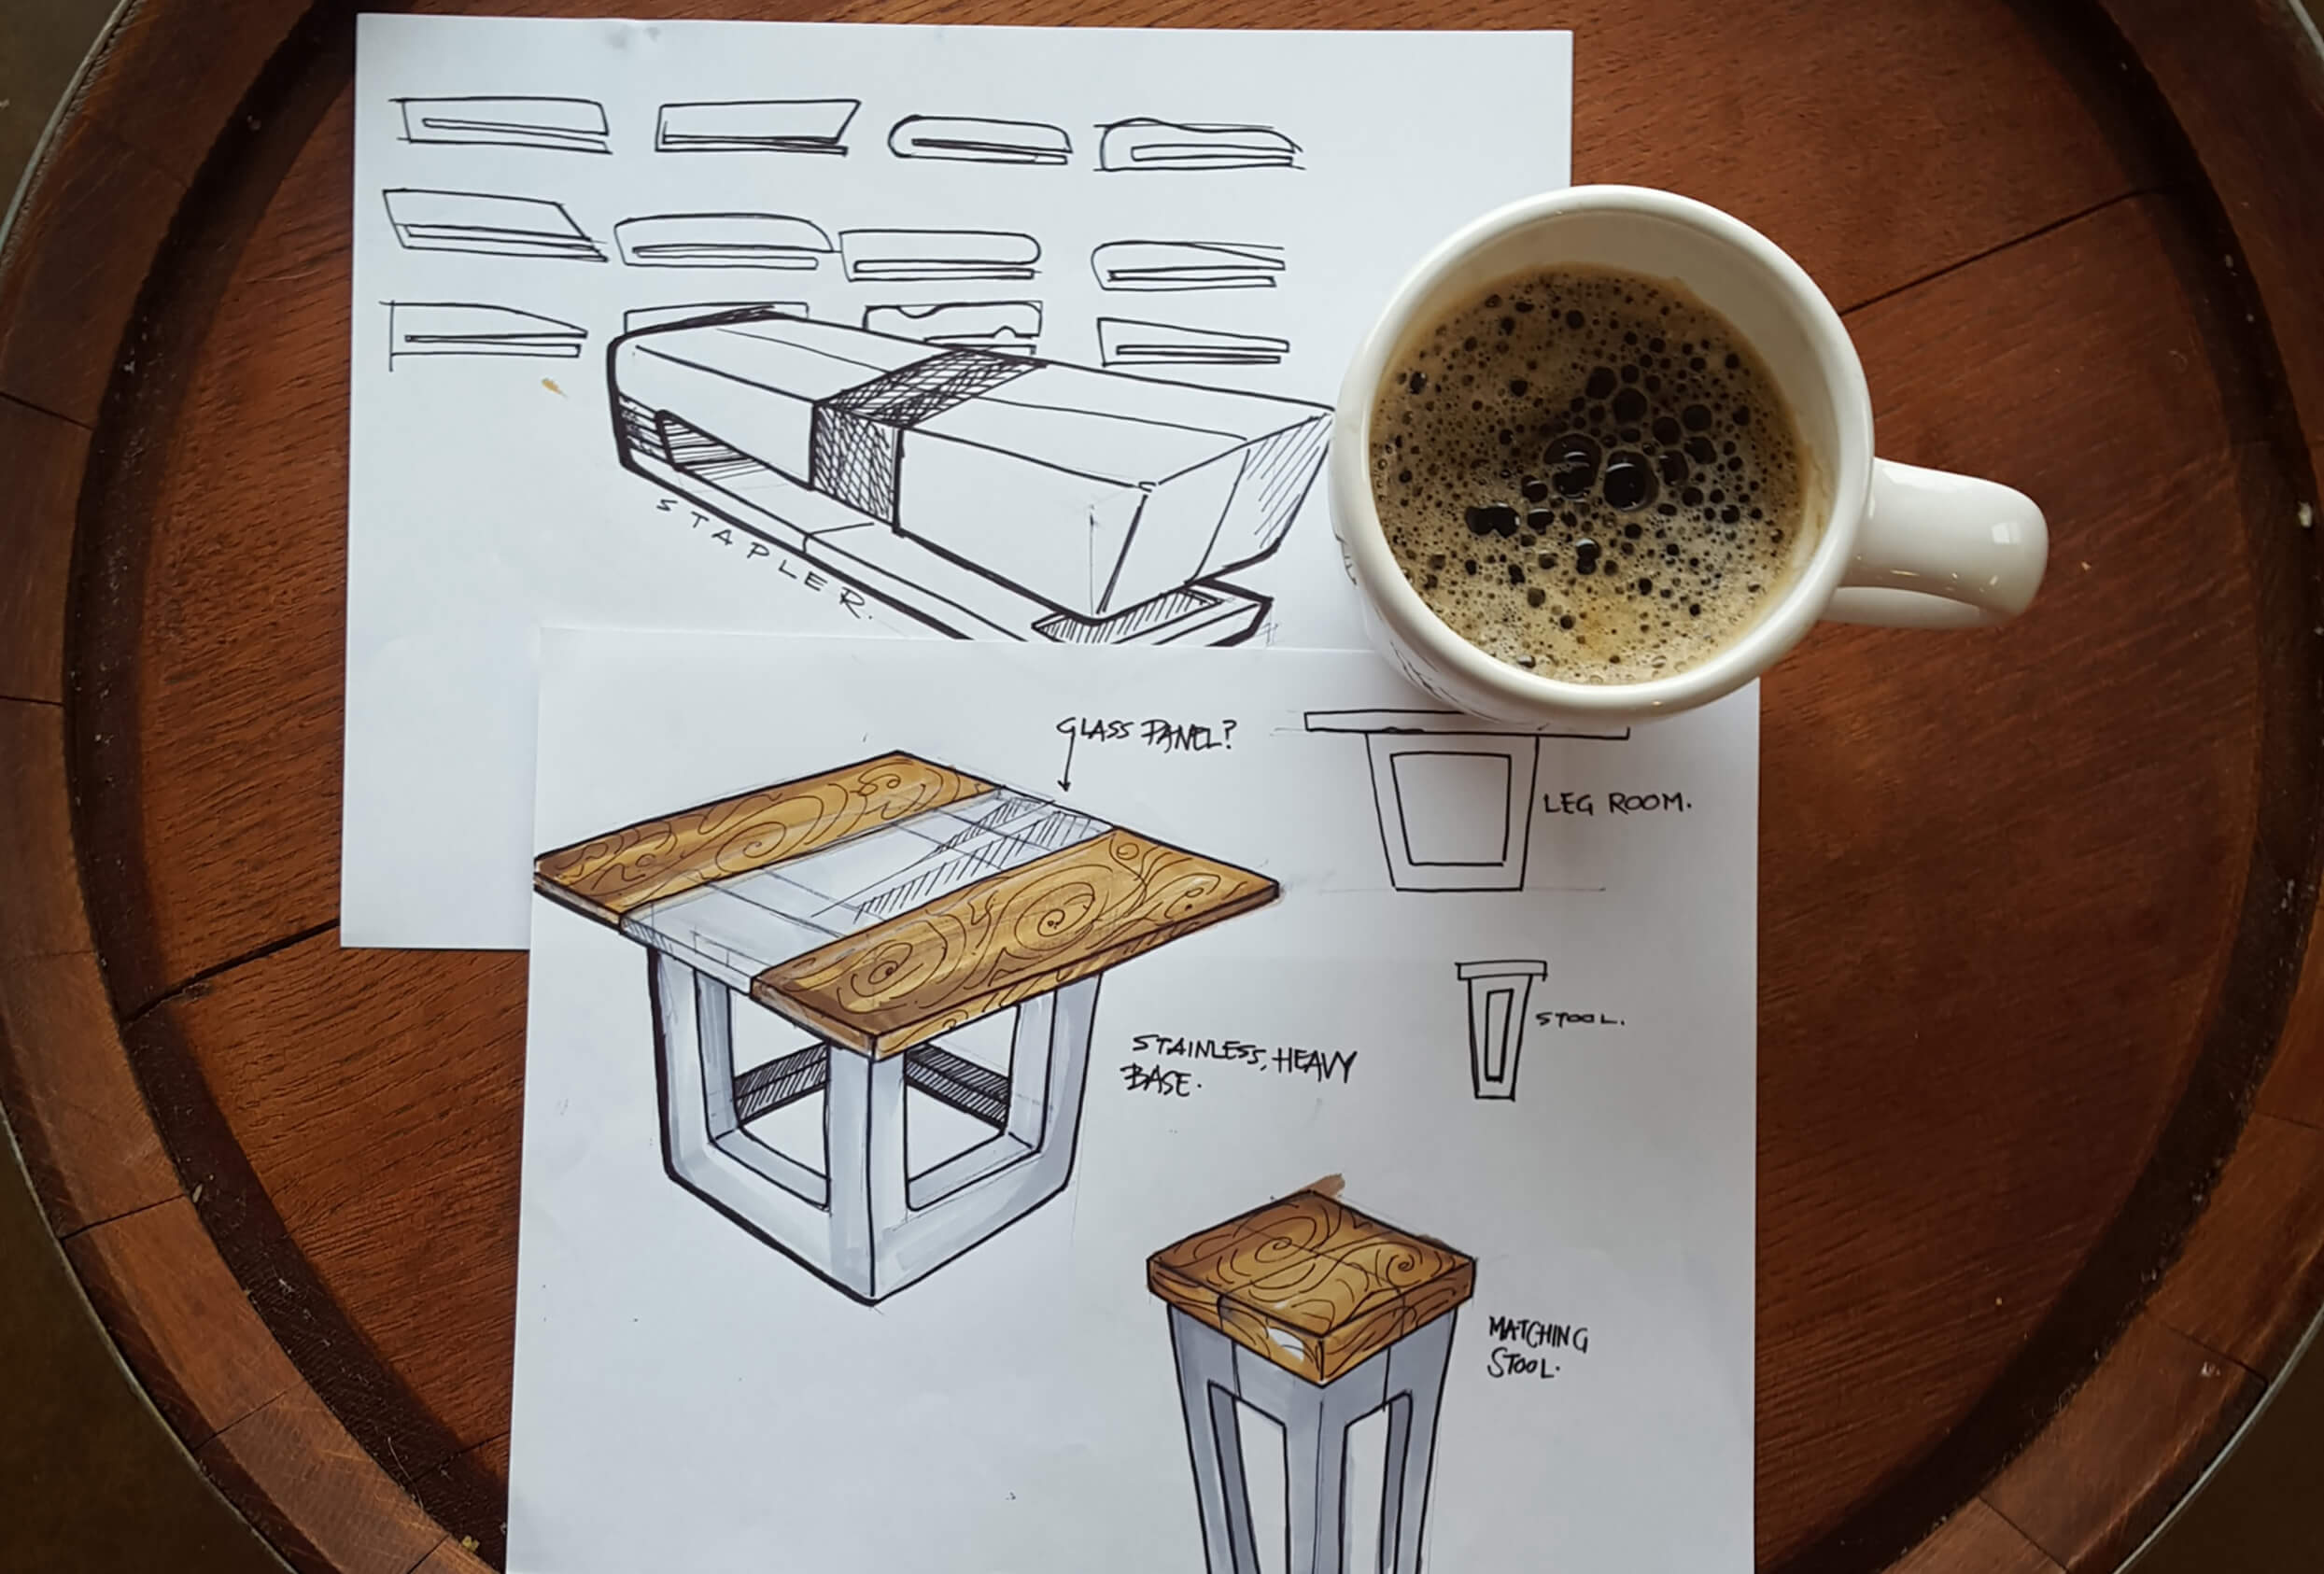 STAPLER.
GLASS PANEL?
LEG ROOM.
STOOL.
STAINLESS, HEAVY
BASE.
MATCHING
STOOL.